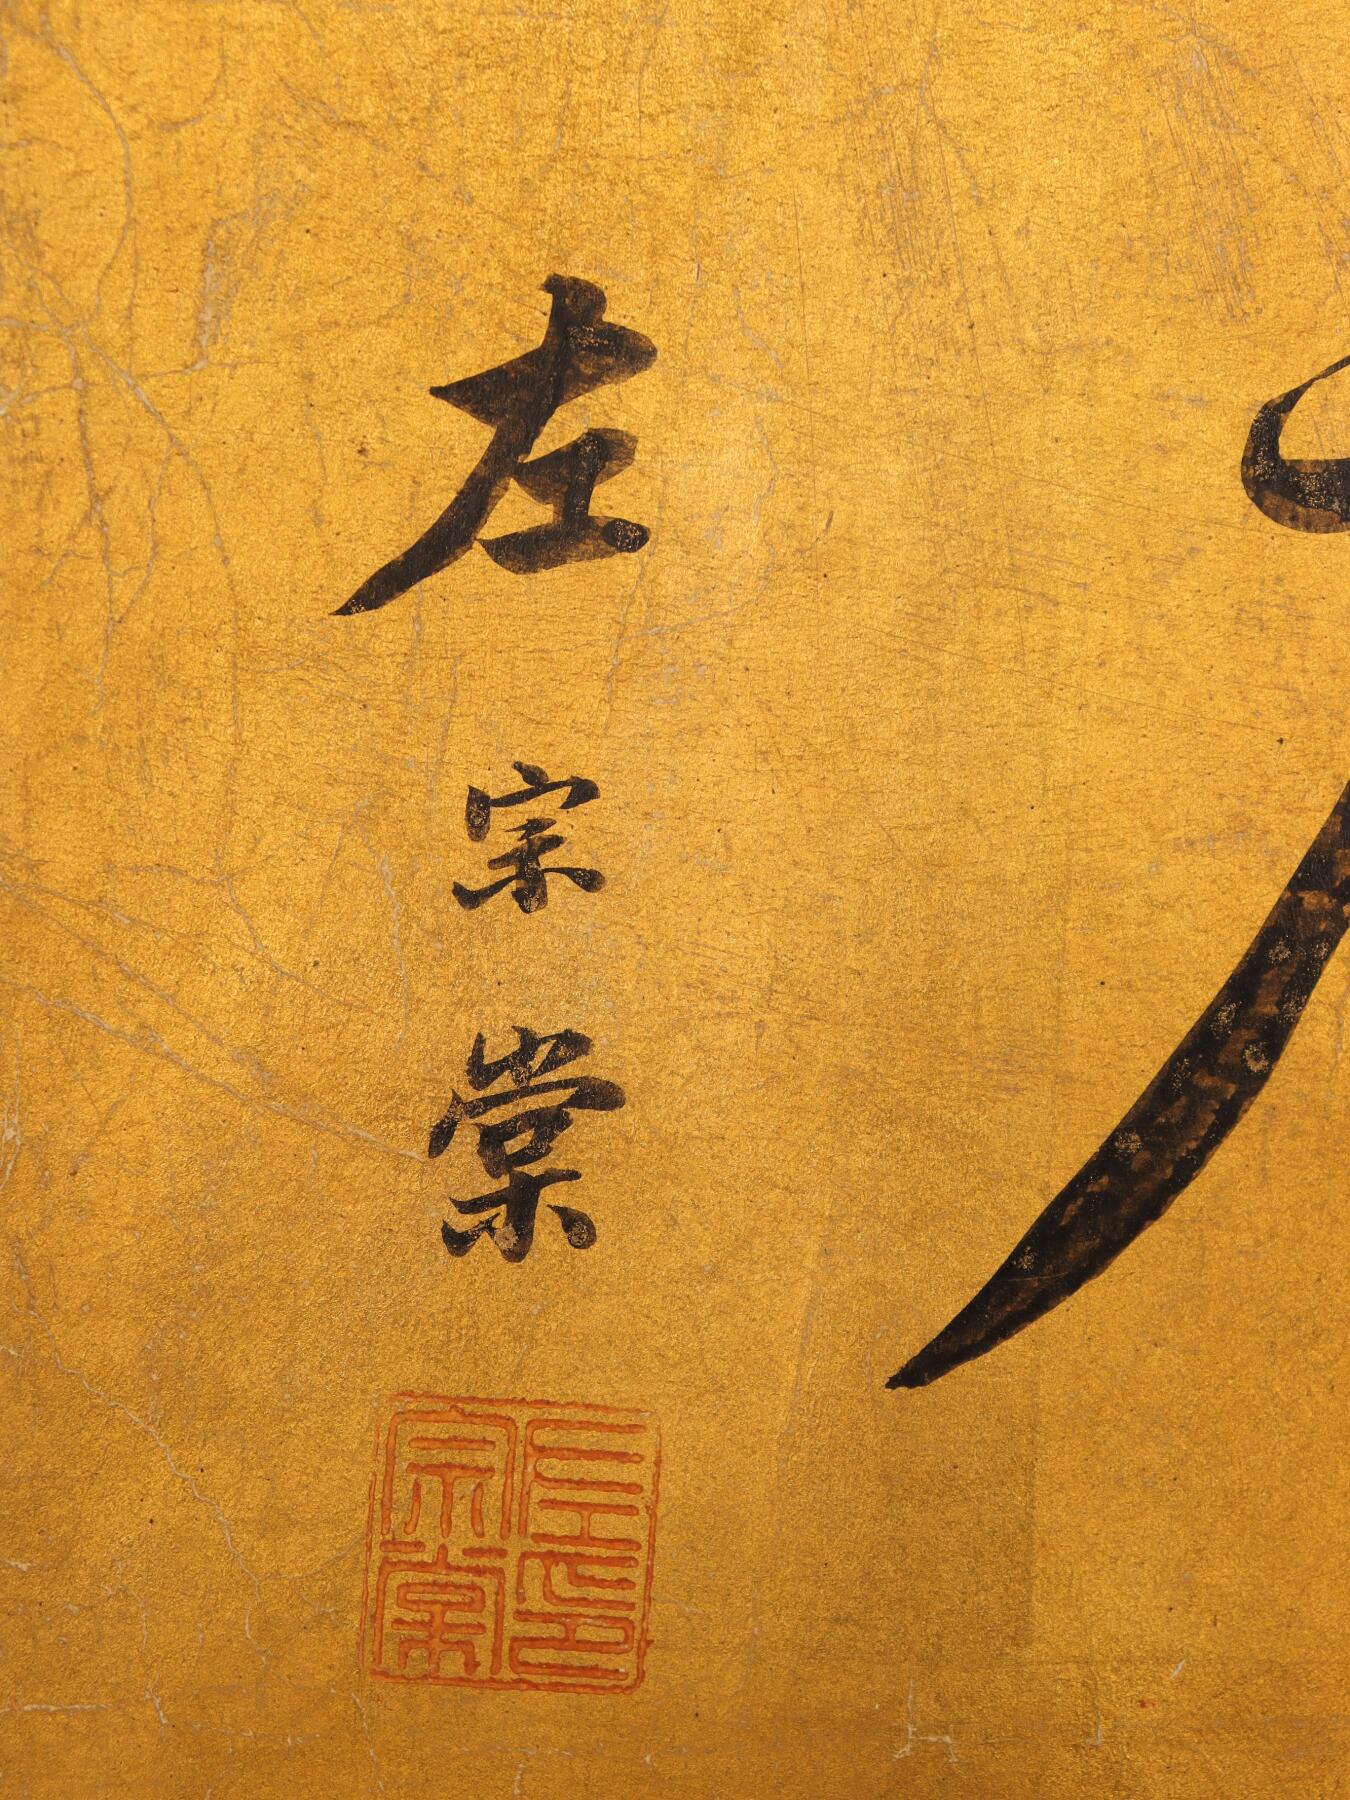 左宗棠
左宗棠印